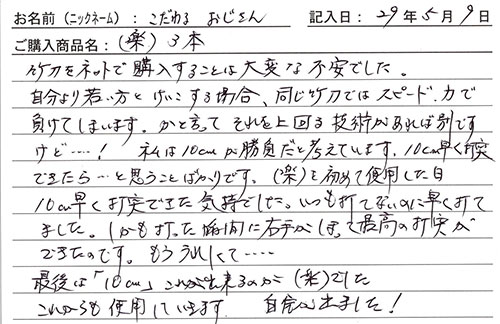 お名前(ニックネーム): こだわる おじさん 記入日: 29年5月9日
ご購入商品名: (楽) 3本
竹刀をネットで購入することは大変な不安でした。
自分より若い方とけいこする場合、同じ竹刀ではスピード、力で
負けてしまいます。かと言ってそれを上回る技術があれば別です
けど……! 私は10cmが勝負だと考えています。10cm早く打突
できたら…と思うことばかりです。(楽)を初めて使用した日
10cm早く打突できた気持でした。いつも打てないのに早く打て
ました。しかも打った瞬間に右手がしぼって最高の打突が
できたのです。もううれしくて……
最後は「10cm」これが出来るのが(楽)でした
これからも使用していきます。 自信が出ました!